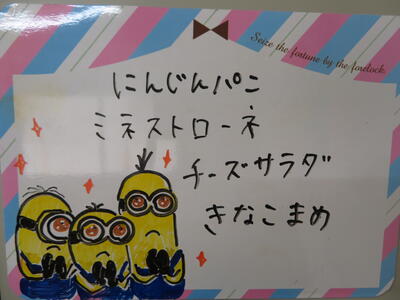 Seize the fortune by the forelock.
にんじんパン
ミネストローネ
チーズサラダ
きなこまめ